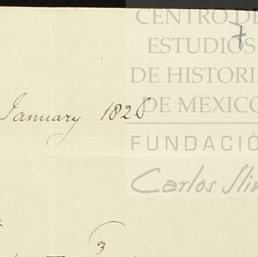 CENTRO DE
ESTUDIOS
DE HISTORI
DE MEXICO
7
January 1828
FUNDACIÓ
Carlos Slim
3